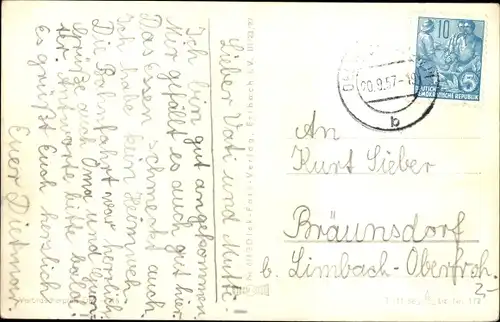 Lieber Vati und Mutti.
Ich bin gut angekommen.
Mir gefällt es auch gut hier.
Das Essen schmeckt auch
Ich habe kein Heimweh.
Die Bahnfahrt war herrlich.
Grüße auch Oma und
Antworte bitte bald.
Es grüßt Euch herzlich
Euer Dietmar
10
5
DEUTSCHE
DEMOKRATISCHE REPUBLIK
20.9.57-19
b
An
Kurt Sieber
Bräunsdorf
b. Limbach-Oberfroh.
2-